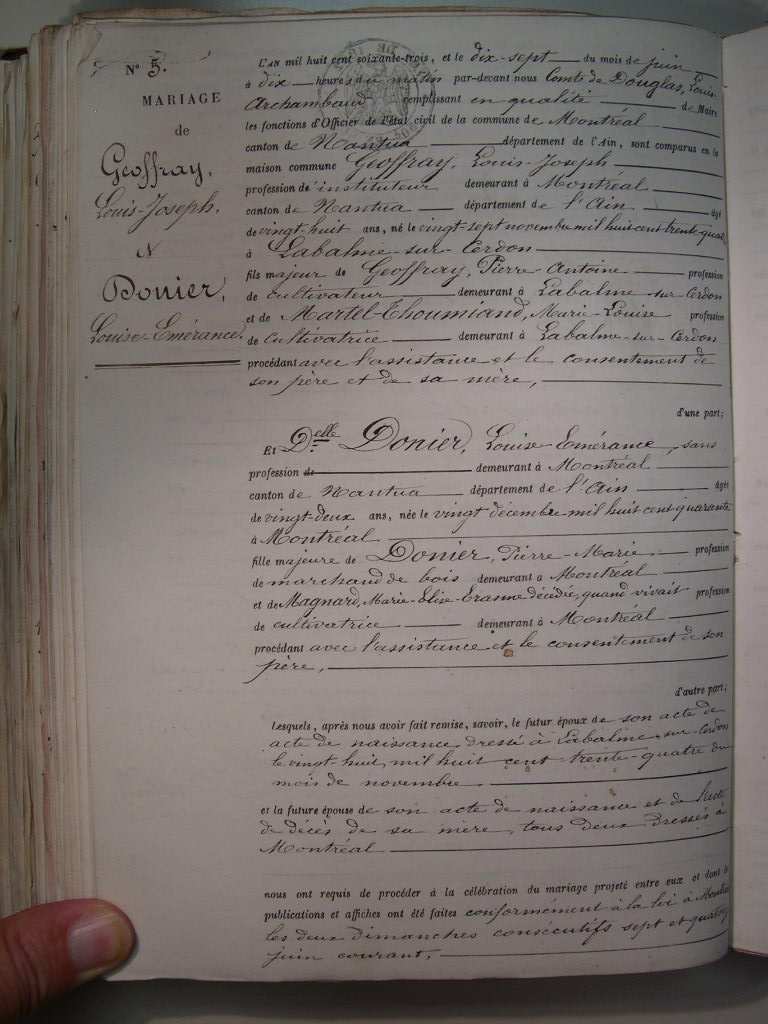 N° 5.
MARIAGE
de
Geoffray,
Louis-Joseph.
&
Donier,
Louise-Emérance.
L'AN mil huit cent soixante-trois, et le dix-sept du mois de juin
à dix heures du matin par-devant nous Comte de Douglas, Louis
Archambaud remplissant en qualité de Maire
les fonctions d'Officier de l'état civil de la commune de Montréal
canton de Nantua département de l'Ain, sont comparus en la
maison commune Geoffray, Louis-Joseph
profession d'instituteur demeurant à Montréal
canton de Nantua département de l'Ain âgé
de vingt-huit ans, né le vingt-sept novembre mil huit cent trente-quatre
à Labalme-sur-Cerdon
fils majeur de Geoffray, Pierre Antoine profession
de cultivateur demeurant à Labalme-sur-Cerdon
et de Martel-Thoumiand, Marie-Louise profession
de cultivatrice demeurant à Labalme-sur-Cerdon
procédant avec l'assistance et le consentement de
son père et de sa mère,
d'une part;
Et Delle Donier, Louise-Emérance, sans
profession de demeurant à Montréal
canton de Nantua département de l'Ain âgée
de vingt-deux ans, née le vingt décembre mil huit cent quarante
à Montréal
fille majeure de Donier, Pierre-Marie profession
de marchand de bois demeurant à Montréal
et de Magnard, Marie-Elise-Erasme décédée, quand vivait profession
de cultivatrice demeurant à Montréal
procédant avec l'assistance et le consentement de son
père,
d'autre part;
Lesquels, après nous avoir fait remise, savoir, le futur époux de son acte de
acte de naissance dressé à Labalme-sur-Cerdon
le vingt huit, mil huit cent trente-quatre du
mois de novembre
et la future épouse de son acte de naissance et de l'acte
de décès de sa mère, tous deux dressés à
Montréal
nous ont requis de procéder à la célébration du mariage projeté entre eux et dont les
publications et affiches ont été faites conformément à la loi à
les deux dimanches consécutifs sept et quatorze
juin courant,